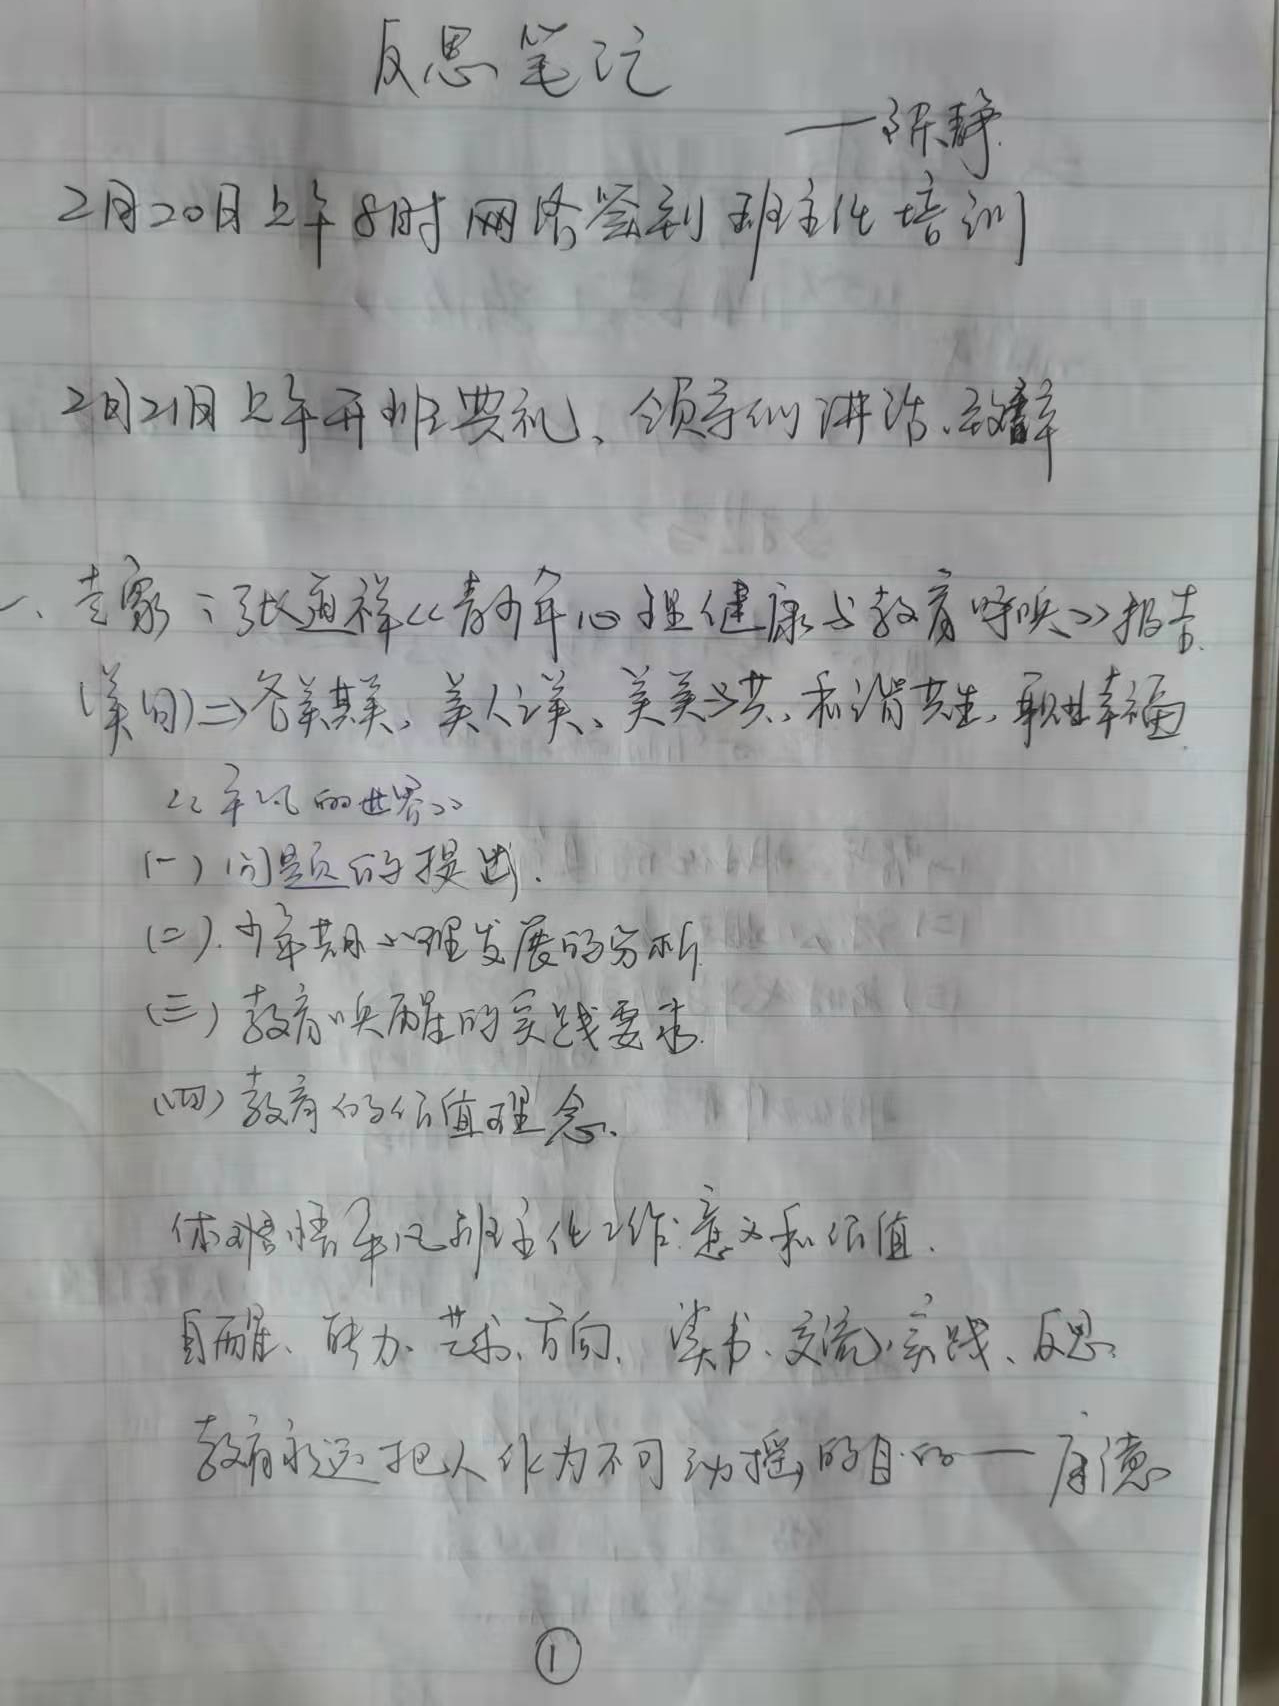 反思笔记
——梁静
2月20日上午8时网络签到班主任培训
2月21日上午开班典礼、领导们讲话、致辞
一、专家：张道祥《青少年心理健康与教育呼唤》报告
(美的)⇒各美其美、美人之美、美美与共、和谐共生、职业幸福
的世界》
(一)问题的提出.
(二).少年期心理发展的分析
(三)教育唤醒的实践要求.
(四)教育的价值理念.
体悟班主任工作意义和价值.
自醒、能力、艺术、方向、读书、交流、实践、反思
教育永远把人作为不可动摇的目的——康德
①